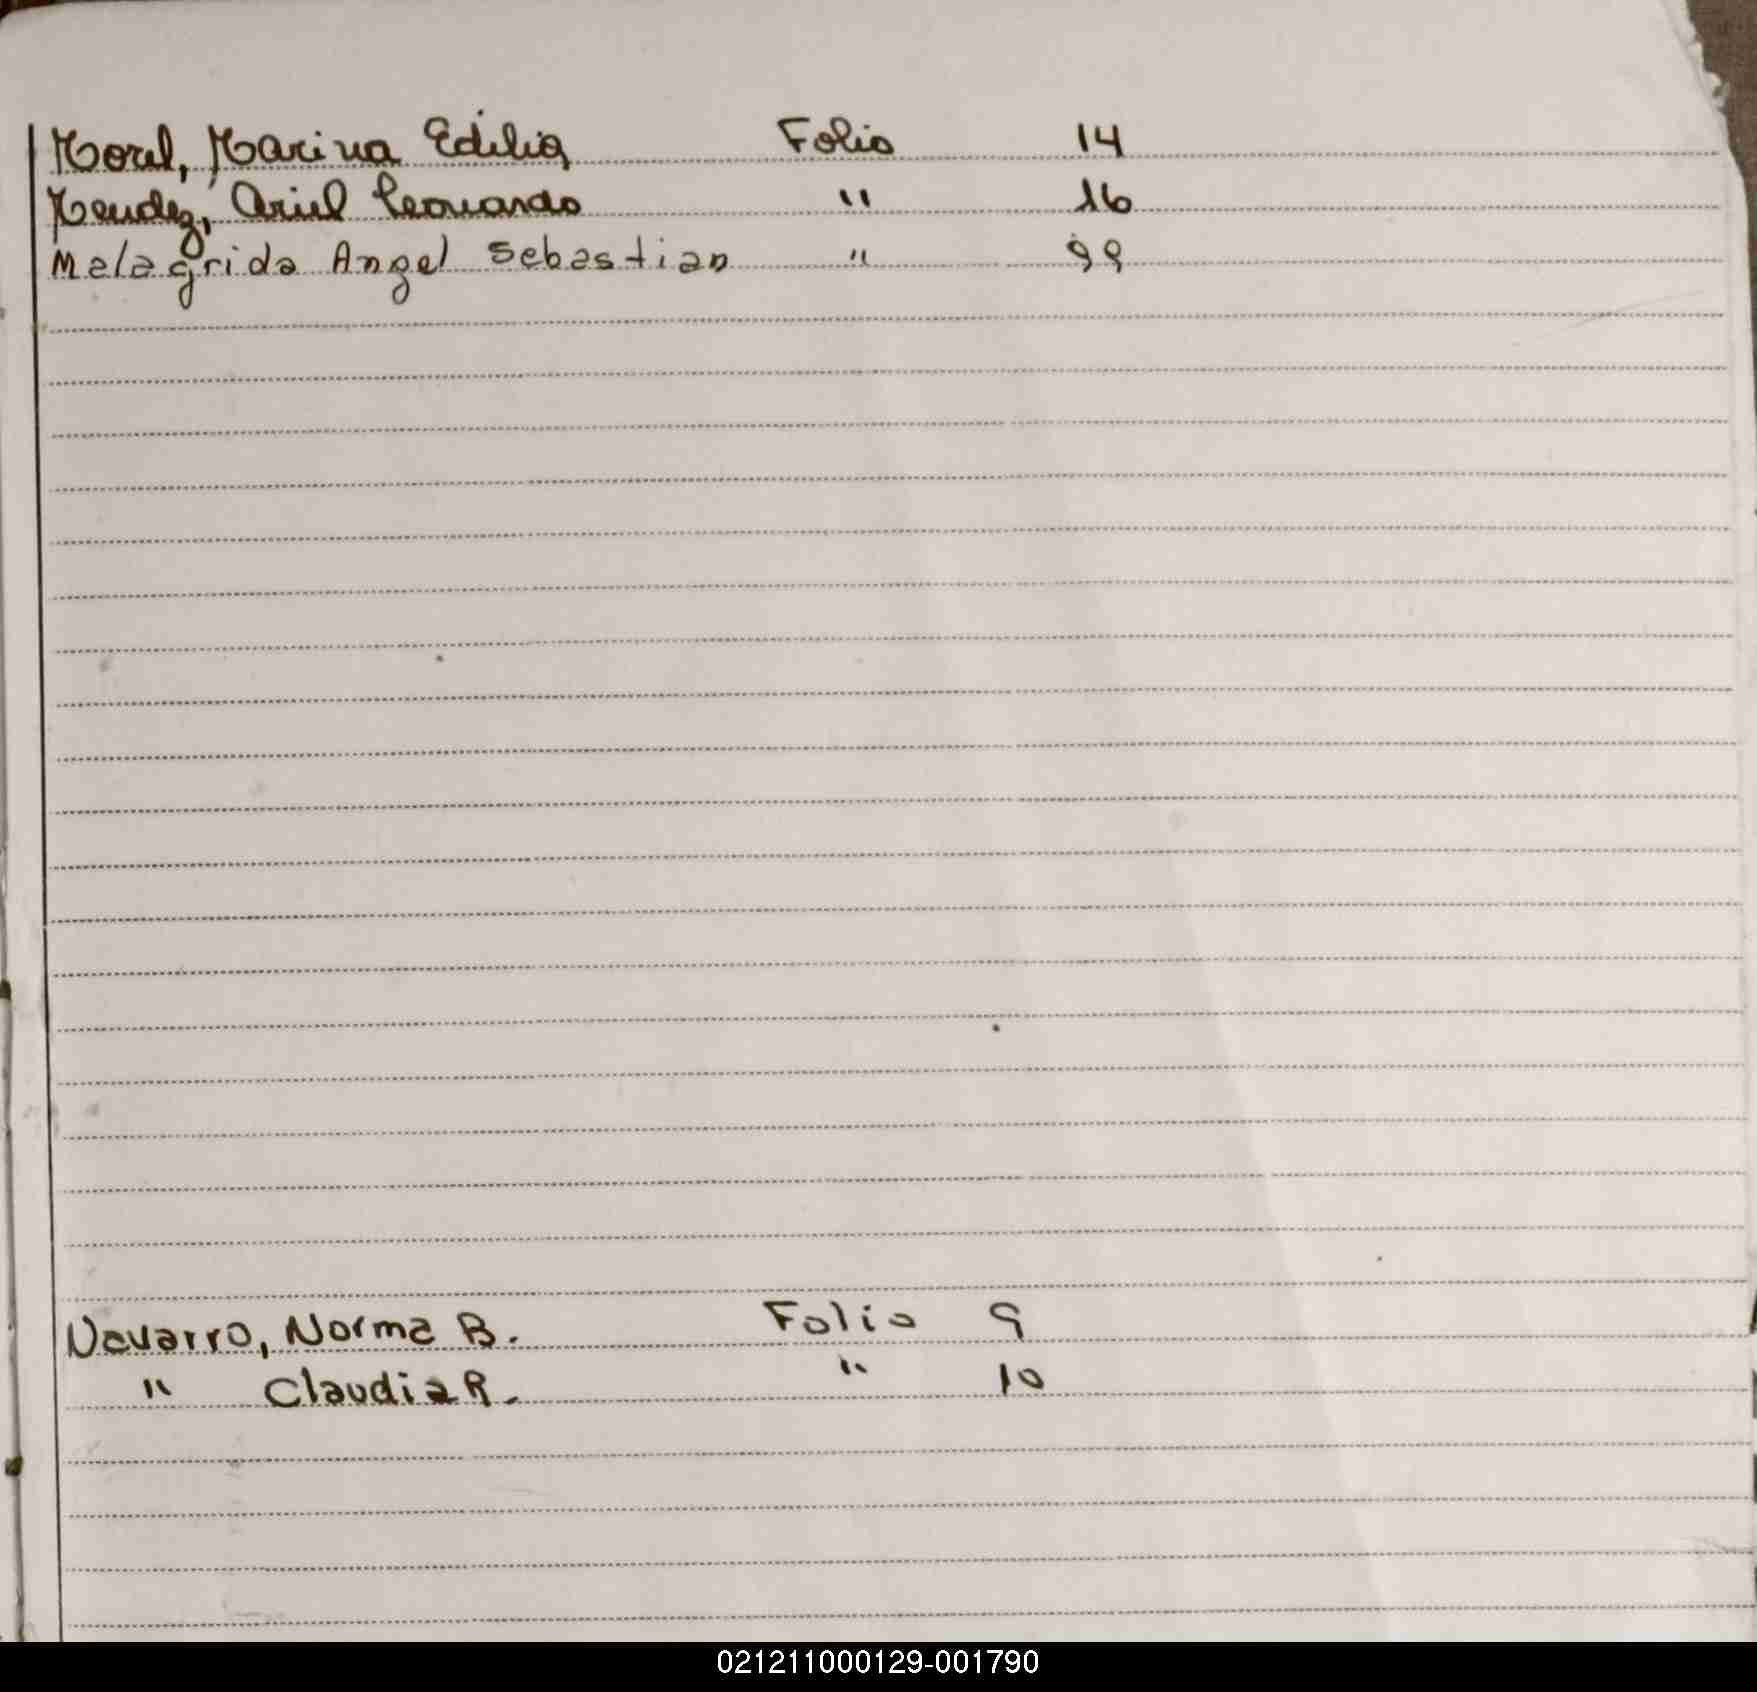 Morel, Marina Edilia Folio 14
Mendez, Ariel Leonardo " 16
Malagrida Angel Sebastian " 99
Navarro, Norma B. Folio 9
" Claudia R. " 10
021211000129-001790